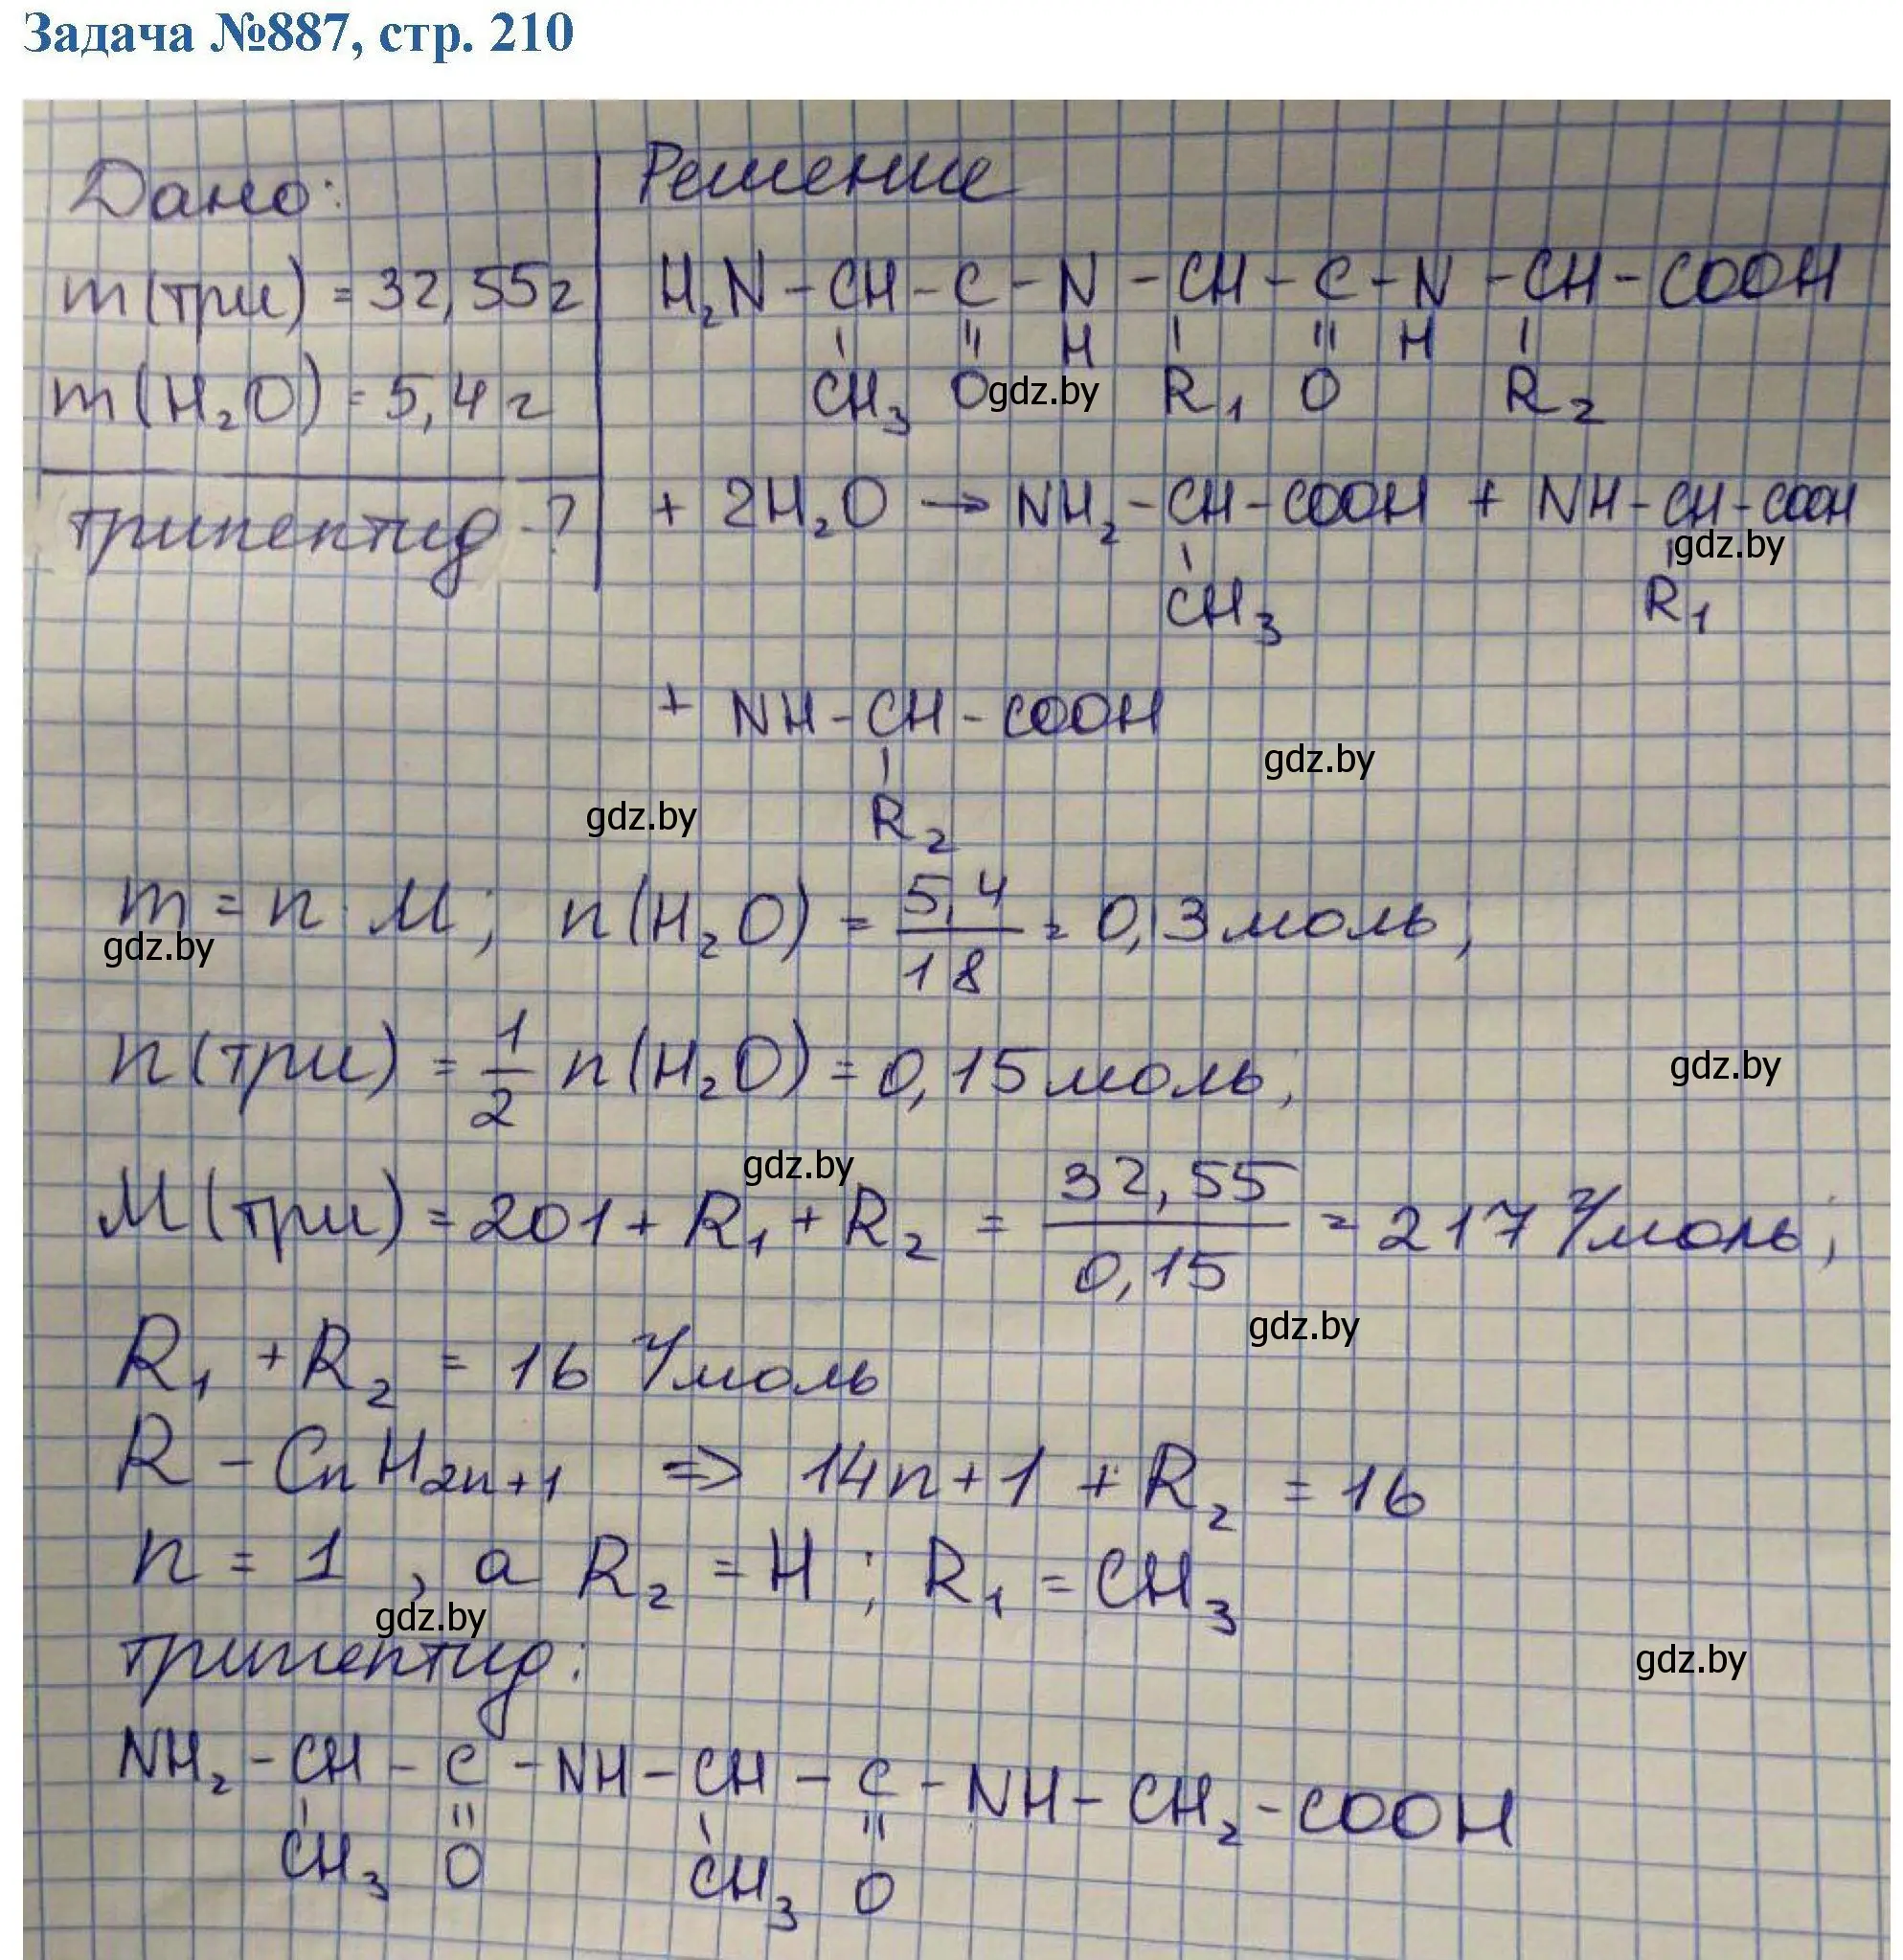 Задача №887, стр. 210
Дано:
m(три) = 32,55г
m(H₂O) = 5,4 г
трипептид - ?
Решение
H₂N - CH - C - N - CH - C - N - CH - COOH
CH₃ O H R₁ O H R₂
gdz.by
+ 2H₂O → NH₂ - CH - COOH + NH - CH - COOH
gdz.by
CH₃ R₁
+ NH - CH - COOH
gdz.by
gdz.by
R₂
m = n · M; n(H₂O) = 5,4/18 = 0,3 моль;
gdz.by
n(три) = 1/2 n(H₂O) = 0,15 моль;
gdz.by
gdz.by
M(три) = 201 + R₁ + R₂ = 32,55/0,15 = 217 г/моль;
gdz.by
R₁ + R₂ = 16 г/моль
R - CnH2n+1 => 14n + 1 + R₂ = 16
n = 1, а R₂ = H; R₁ = CH₃
gdz.by
трипептид:
gdz.by
NH₂ - CH - C - NH - CH - C - NH - CH₂ - COOH
CH₃ O CH₃ O